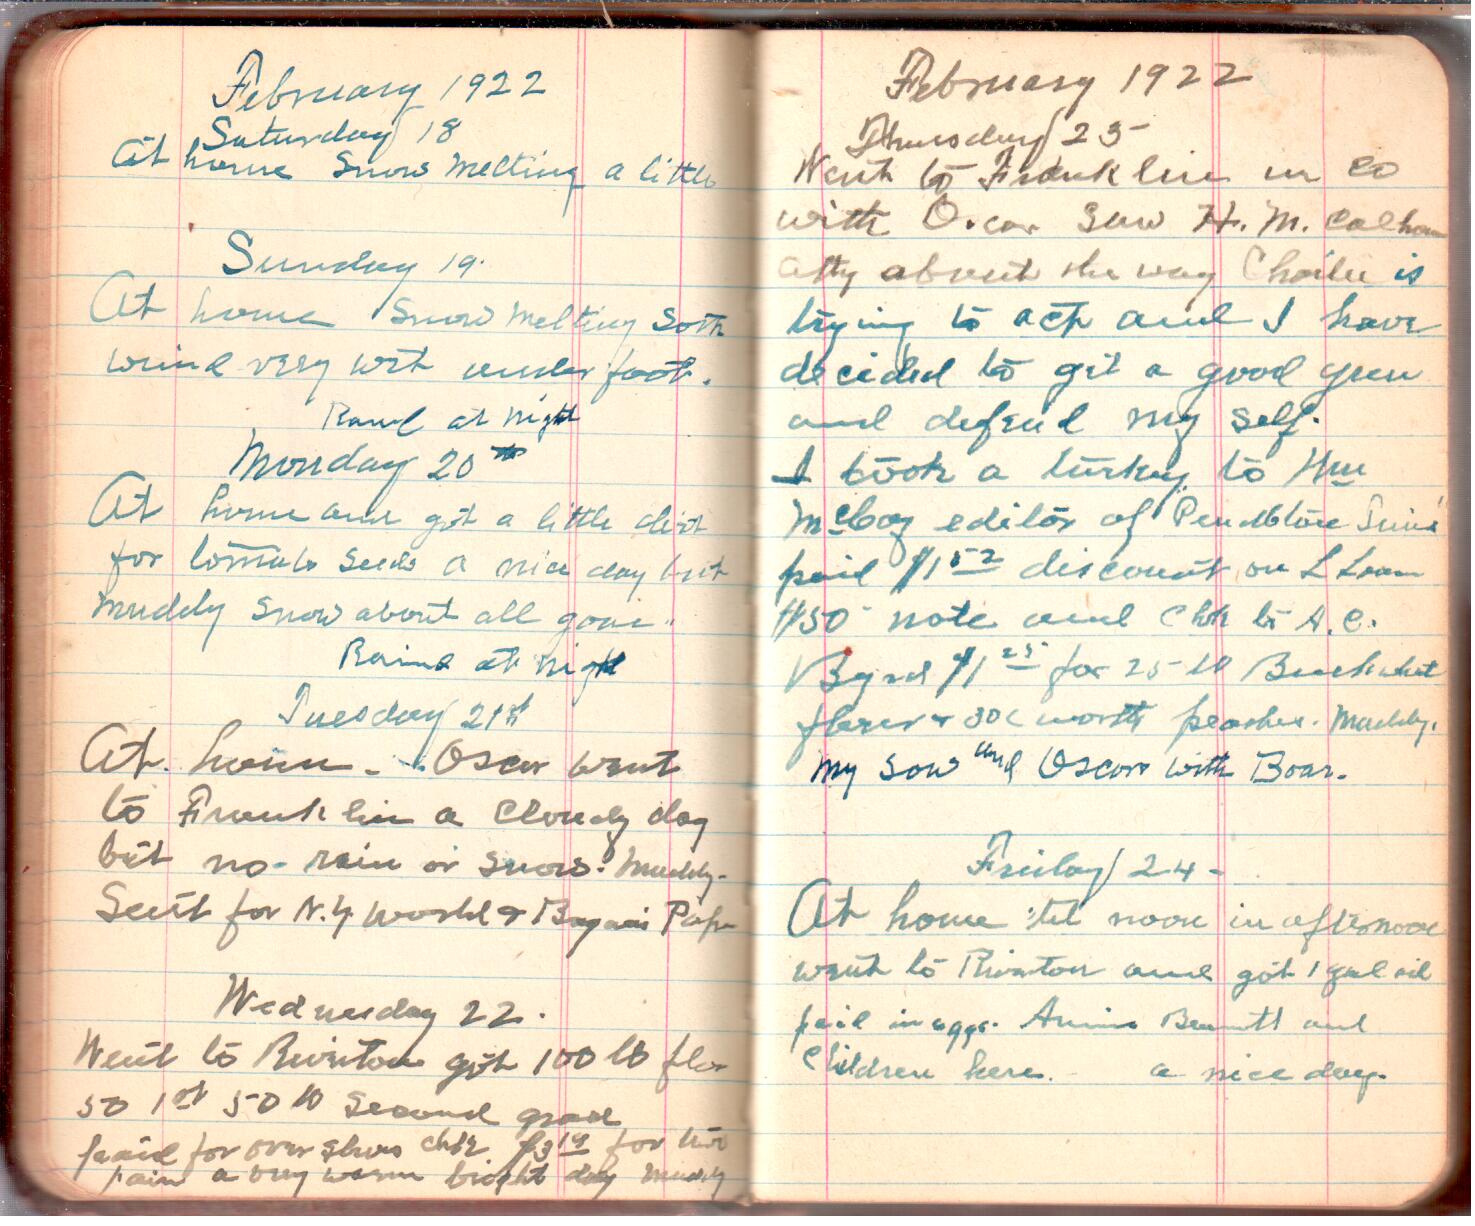 February 1922
Saturday 18
At home Snow melting a little
Sunday 19.
At home Snow melting Soth
wind very wet under foot.
Raind at night
Monday 20th
At home and got a little dirt
for tomato seeds a nice day but
muddy snow about all gone.
Raind at night
Tuesday 21st
At home. Oscar went
to Franklin a cloudy day
but no rain or snow. Muddy.
Sent for N.Y. World & Papr
Wednesday 22.
Went to Riverton got 100 lb flor
50 1st 50 lb second grad
paid for over shoes chk $3 for two
pair a very warm bright day muddy
February 1922
Thursday 23
Went to Franklin in co
with Oscar saw H. M. Calhoun
atty about the way Charlie is
trying to act and I have
decided to git a good gun
and defend my self.
I took a turkey to Wm
McCoy editor of Pendleton Times
paid $1 52 discount on L Loan
$50 note and Chk to A. C.
Byrd $1 25 for 25 lb Buckwhet
flour & 30c worth peaches. Muddy.
my sow and Oscars with Boar.
Friday 24
At home 'tel noon in afternoon
went to Riverton and got 1 gal oil
paid in eggs. Annie Bennett and
Children here. a nice day.